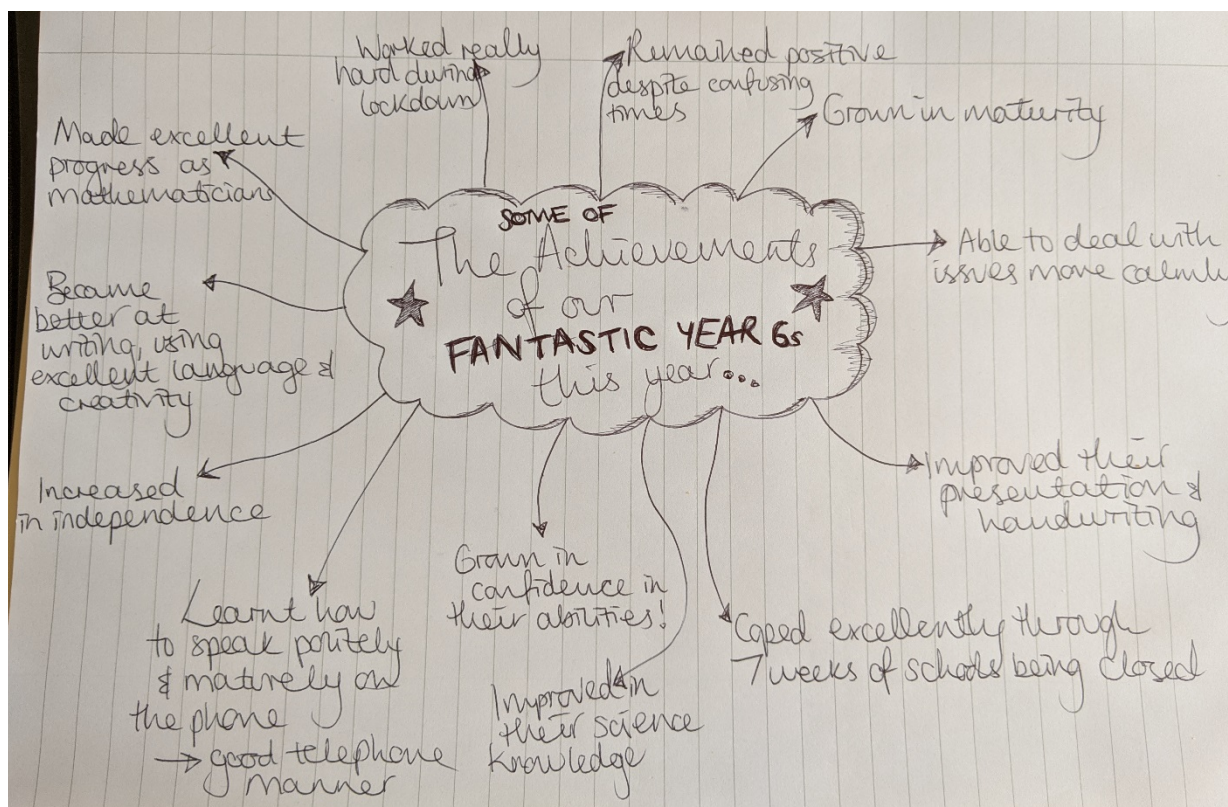 SOME OF
The Achievements
of our
FANTASTIC YEAR 6s
this year...
Worked really
hard during
lockdown
Remained positive
despite confusing
times
Grown in maturity
Able to deal with
issues more calmly
Improved their
presentation &
handwriting
Coped excellently through
7 weeks of schools being closed
Improved in
their science
knowledge
Grown in
confidence in
their abilities!
Learnt how
to speak politely
& maturely on
the phone
→ good telephone
manner
Increased
in independence
Became
better at
writing, using
excellent language &
creativity
Made excellent
progress as
mathematicians